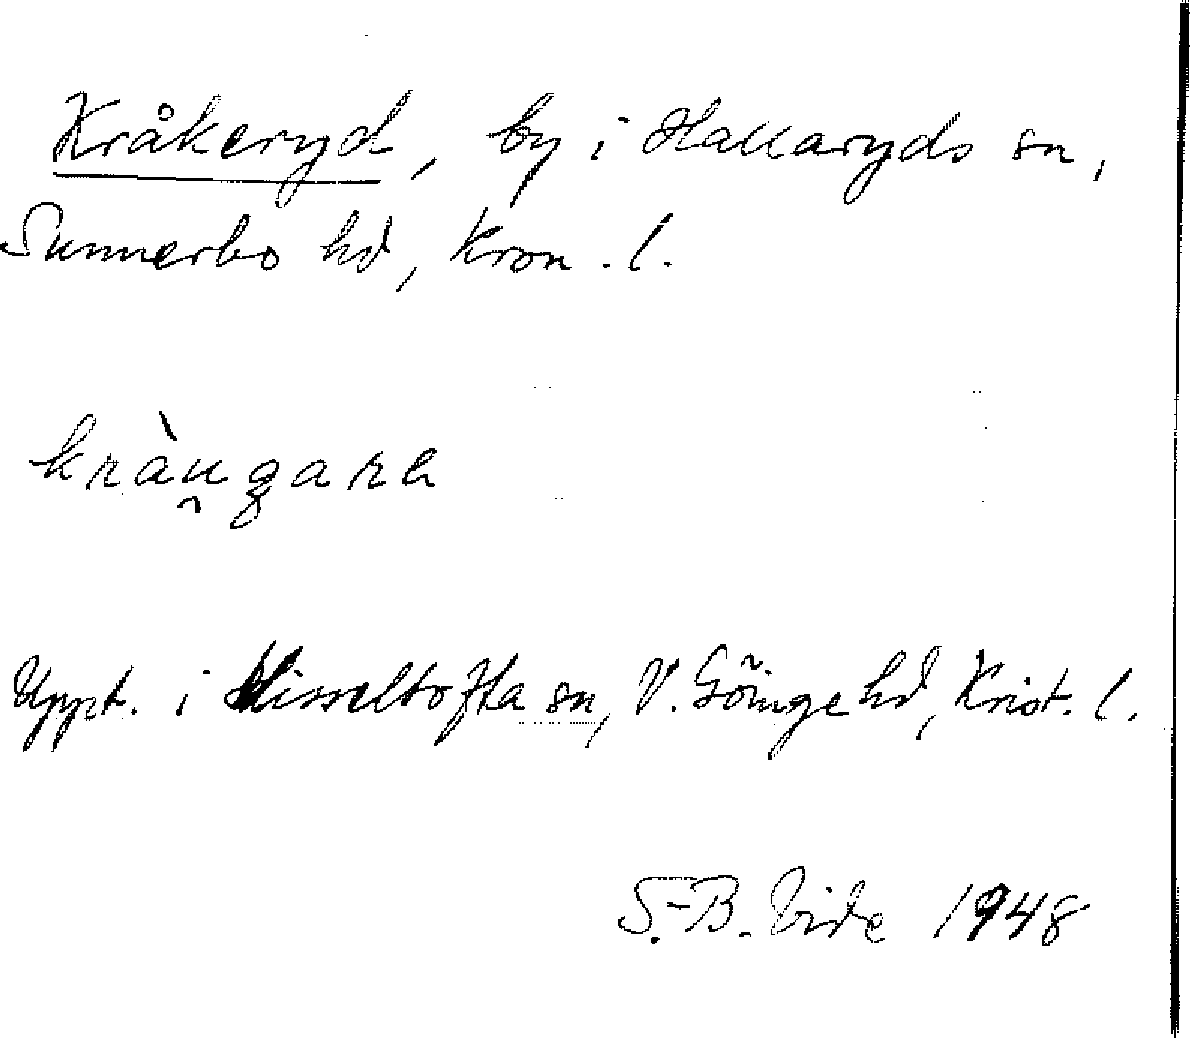 Kråkeryd, by i Hallaryds sn,
Sunnerbo hd, Kron. l.
kràu̯gara
Uppt. i Hisseltofta sn, V. Göinge hd, Krist. l.
S.-B. Vide 1948